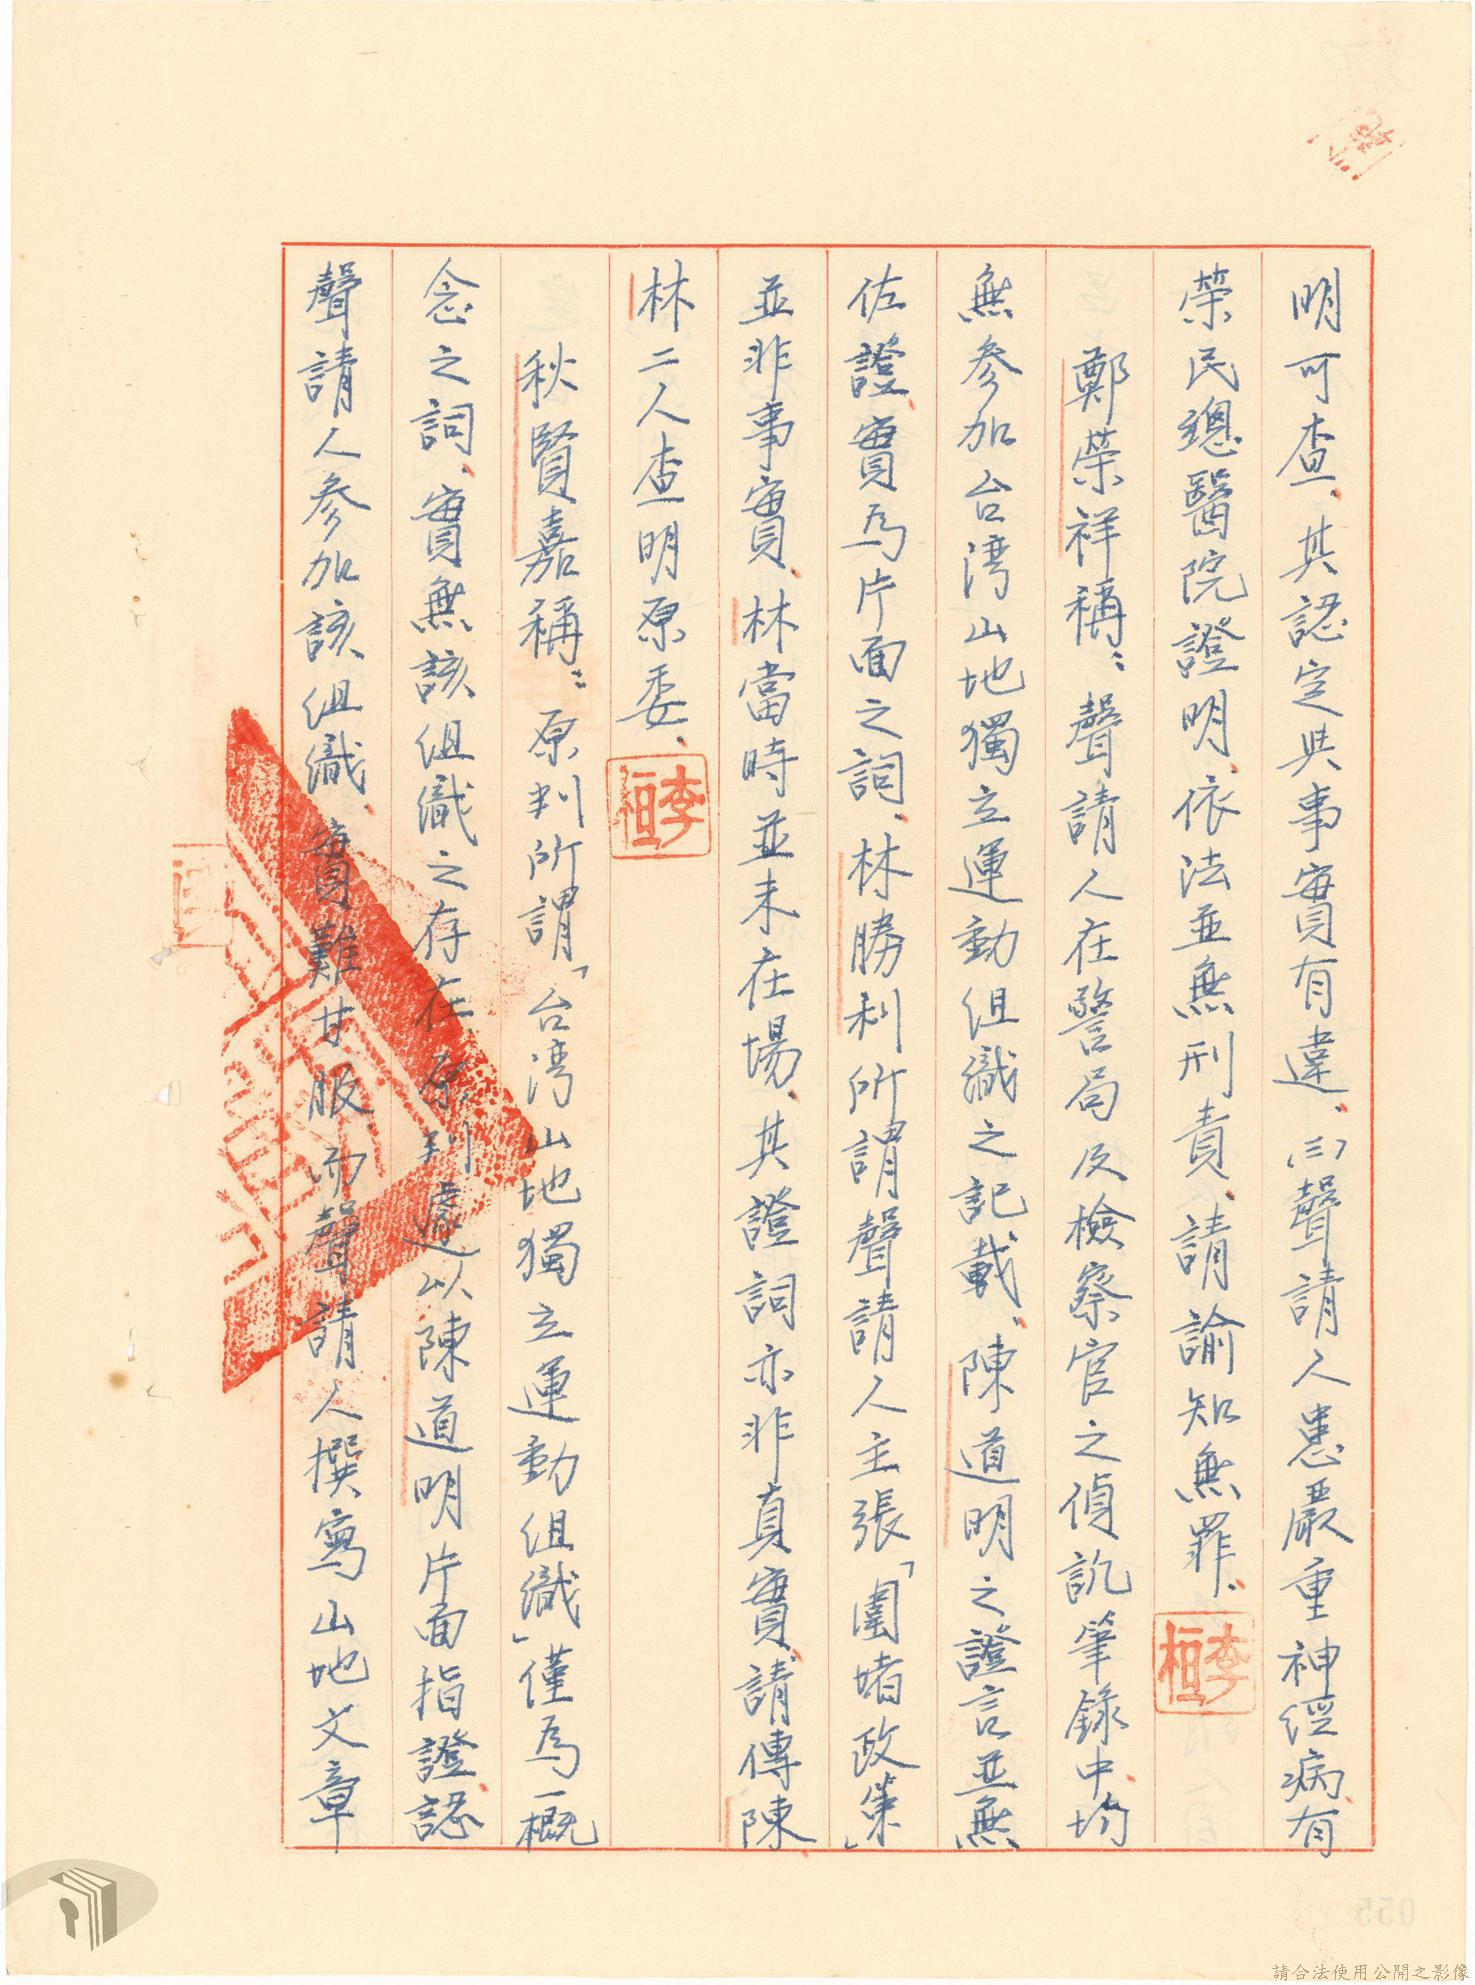 明可查、其認定與事實有違、(三)聲請人患嚴重神經病有
榮民總醫院證明、依法並無刑責、請諭知無罪、
李桓
鄭榮祥稱：聲請人在警局及檢察官之偵訊筆錄中均
無參加台湾山地獨立運動組織之記載、陳道明之證言並無
佐證實為片面之詞、林勝利所謂聲請人主張「圍堵政策」
並非事實、林當時並未在場、其證詞亦非真實、請傳陳
林二人查明原委、
李桓
秋賢嘉稱：原判所謂「台湾山地獨立運動組織」僅為一概
念之詞、實無該組織之存在、原判遽以陳道明片面指證認
聲請人參加該組織、實難甘服、而聲請人撰寫山地文章
055
請合法使用公開之影像